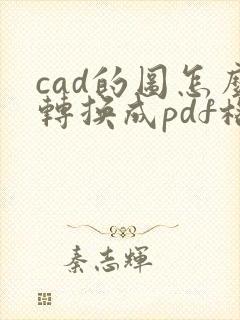 cad的圖怎麼
轉換成pdf格
秦志輝